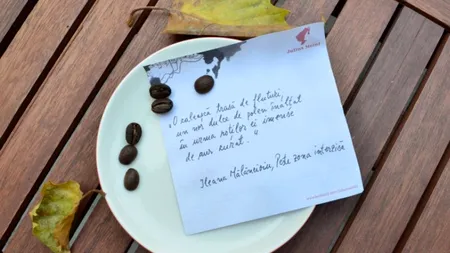 Julius Meinl
„O caleașcă trasă de fluturi,
un nor dulce de polen înălțat
în urma roților ei imense
de aur curat."
Ileana Mălăncioiu, Peste zona interzisă